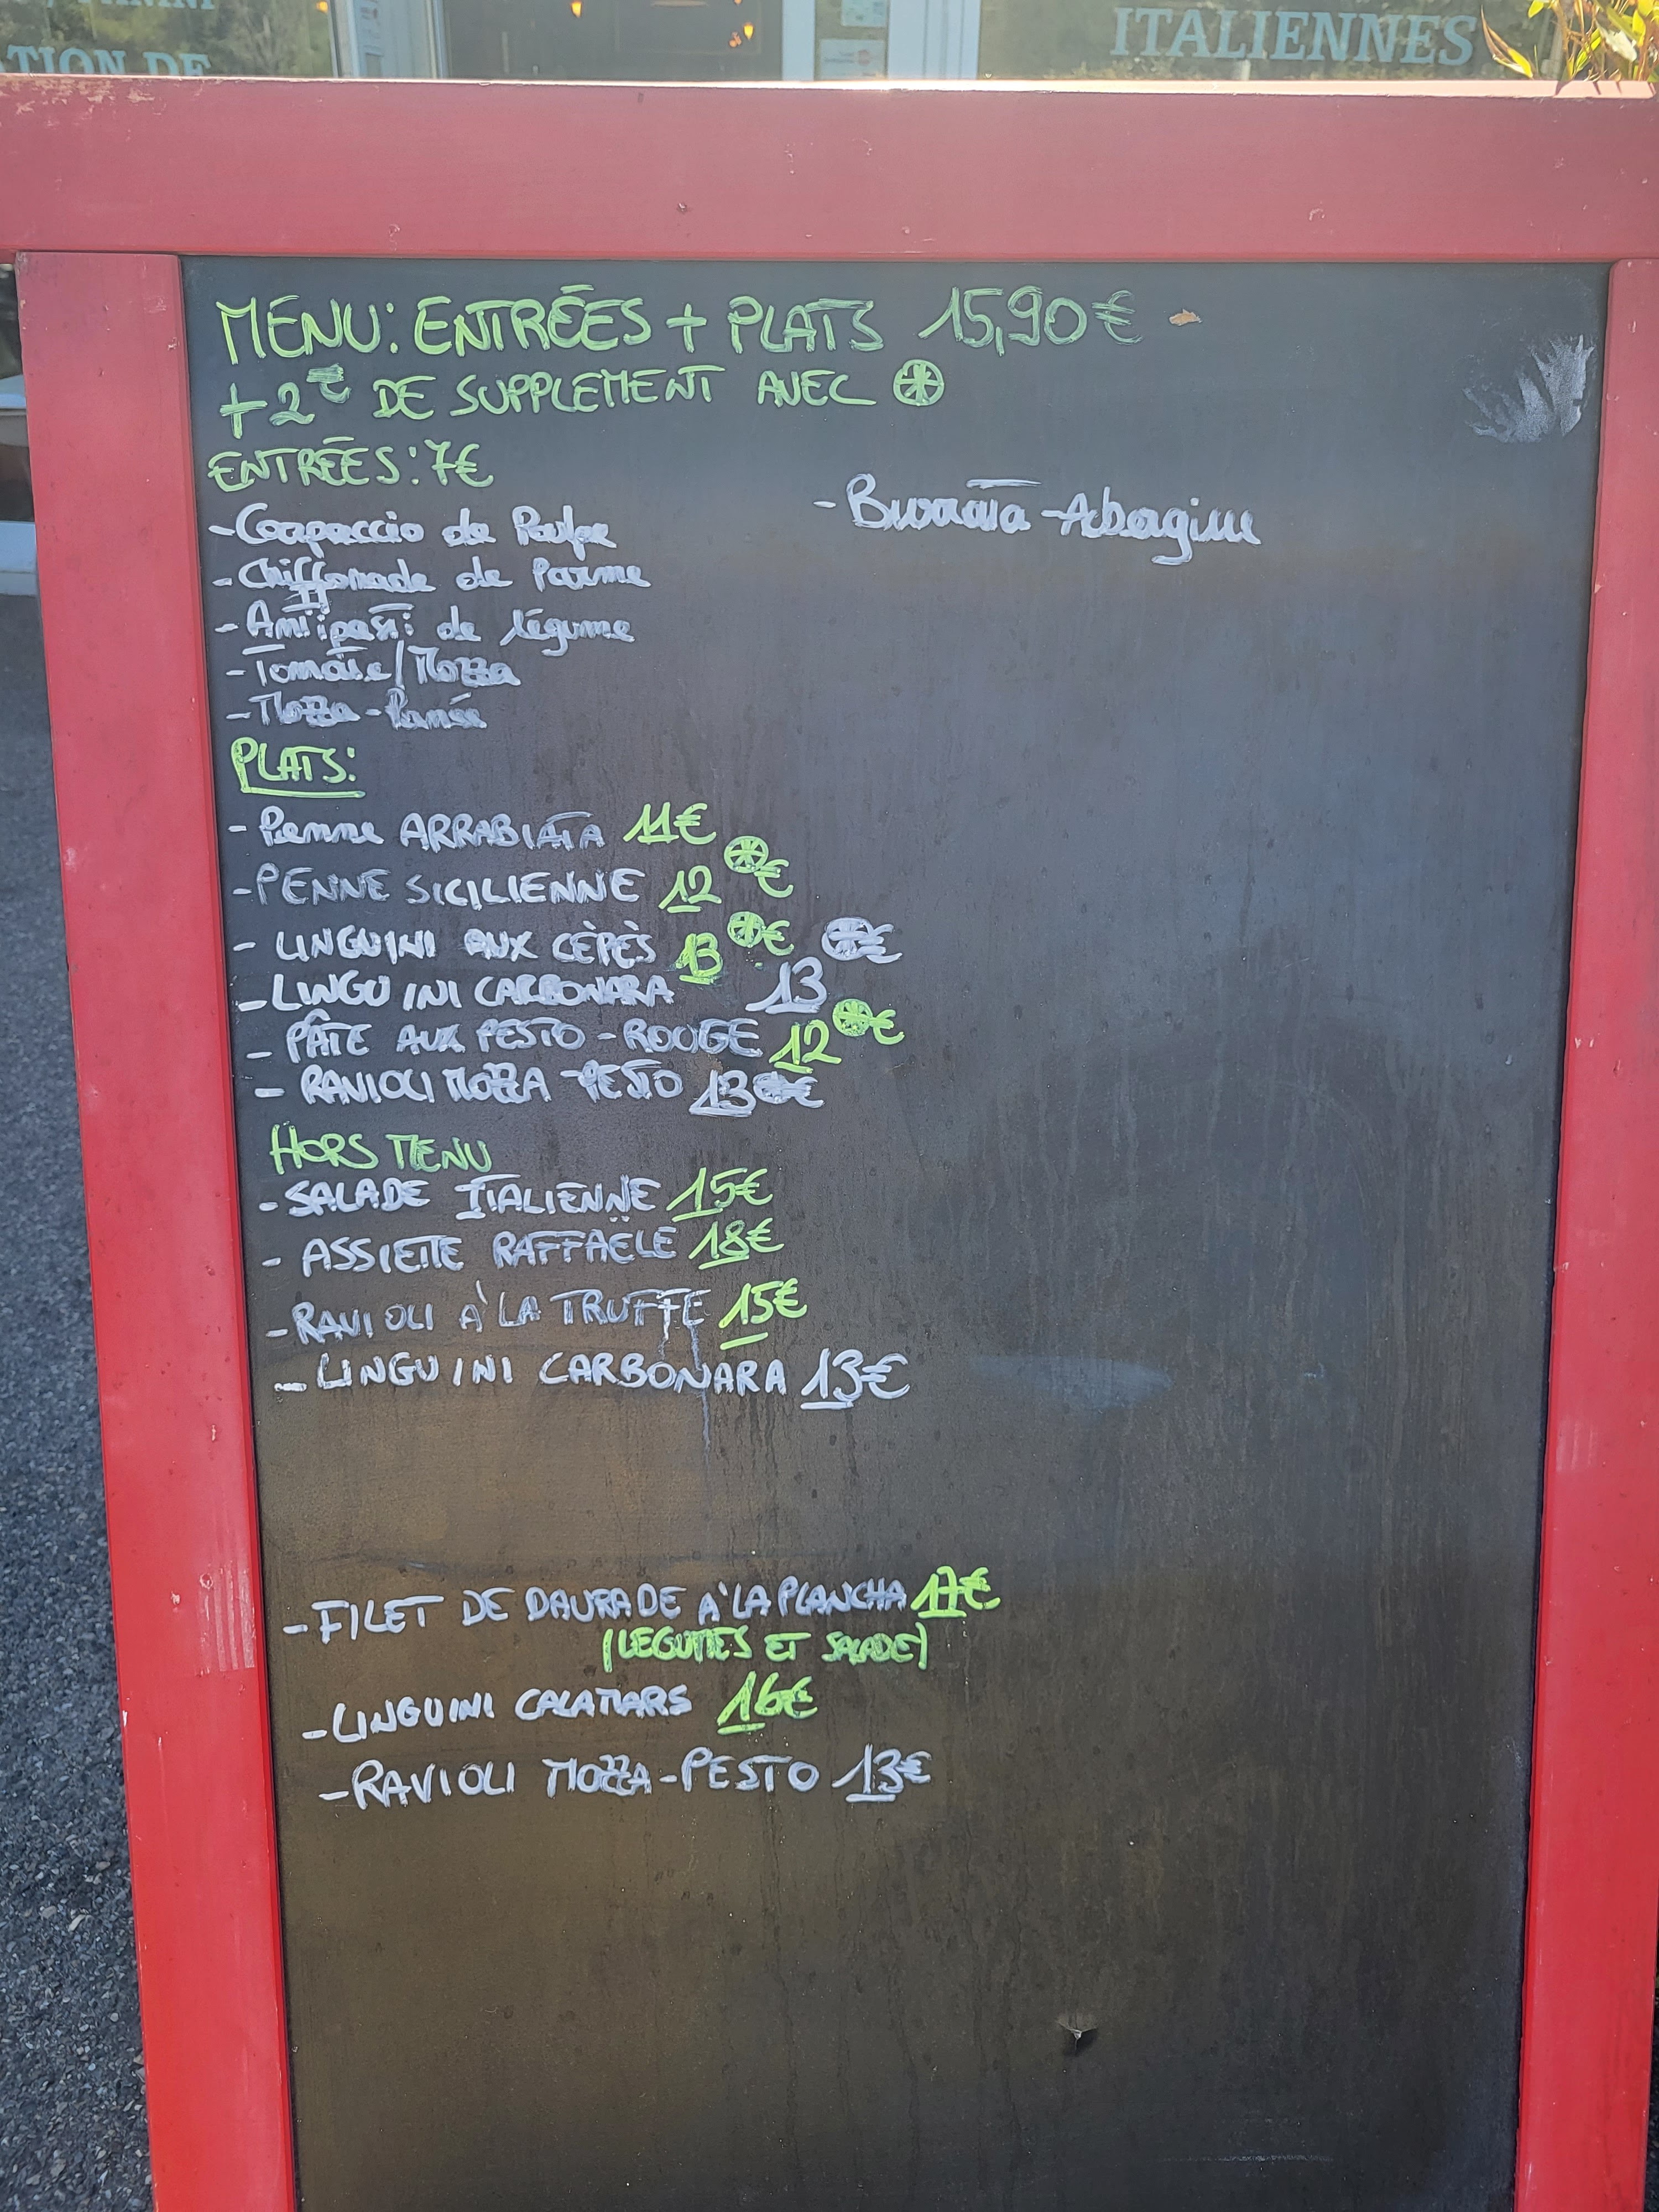 ATION DE
ITALIENNES
MENU: ENTRÉES + PLATS 15,90€ -
+ 2€ DE SUPPLEMENT AVEC ⊛
ENTRÉES: 7€
- Carpaccio de Poulpe
- Burrata - Aubergine
- Chiffonade de Parme
- Antipasti de légume
- Tomate/Mozza
- Mozza - Panée
PLATS:
- Penne ARRABIATA 11€
- PENNE SICILIENNE 12⊛€
- LINGUINI AUX CÈPÈS 13⊛€
- LINGUINI CARBONARA 13⊛€
- PÂTE AUX PESTO - ROUGE 12⊛€
- RAVIOLI MOZZA PESTO 13⊛€
HORS MENU
- SALADE ITALIENNE 15€
- ASSIETTE RAFFAËLE 18€
- RAVIOLI À LA TRUFFE 15€
- LINGUINI CARBONARA 13€
- FILET DE DAURADE À LA PLANCHA 17€
(LEGUMES ET SALADE)
- LINGUINI CALAMARS 16€
- RAVIOLI MOZZA - PESTO 13€